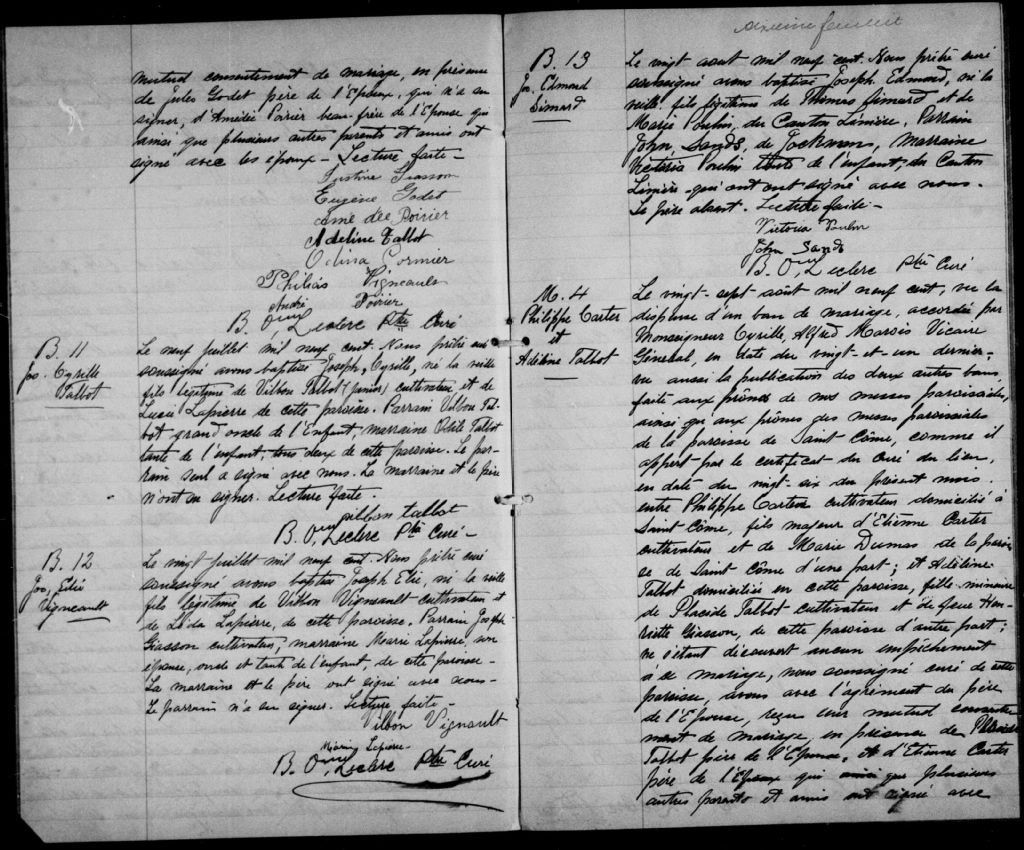 mutuel consentement de mariage, en présence
de Jules Godet père de l'Epoux, qui n'a su
signer, d'Amédée Poirier beau-frère de l'Epouse qui
ainsi que plusieurs autres parents et amis ont
signé avec les époux - Lecture faite -
Justine Giasson
Eugène Godet
Amé dée Poirier
Adeline Talbot
Odina Cormier
Philias Vigneault
André Poirier
B. Ouy Leclerc Ptre Curé
B. 11
Jos. Cyrille
Talbot
Le neuf juillet mil neuf cent. Nous prêtre curé
soussigné avons baptisé Joseph, Cyrille, né la veille
fils légitime de Vilbon Talbot (junior) cultivateur et de
Lucie Lapierre de cette paroisse. Parrain Vilbon Tal-
bot grand oncle de l'Enfant, marraine Odile Talbot
tante de l'enfant, tous deux de cette paroisse. Le par-
rain seul a signé avec nous. La marraine et le père
n'ont su signer. Lecture faite.
vilbon talbot
B. O. Leclerc Ptre Curé -
B. 12
Jos, Elié
Vigneault
Le vingt juillet mil neuf cent. Nous prêtre curé
soussigné avons baptisé Joseph Elie, né la veille
fils légitime de Vilbon Vigneault cultivateur et
de Léda Lapierre, de cette paroisse. Parrain Joseph
Giasson cultivateur, marraine Marie Lapierre, son
épouse, oncle et tante de l'enfant, de cette paroisse -
La marraine et le père ont signé avec nous -
Le parrain n'a su signer. Lecture faite -
Vilbon Vignault
Lapierre
B. Ouy Leclerc Ptre Curé
feuillet
B. 13
Jos. Edmond
Simard
Le vingt aout mil neuf cent. Nous prêtre curé
soussigné avons baptisé Joseph, Edmond, né la
veille, fils légitime de Thomas Simard et de
Marie Poulin, du Canton Linière. Parrain
John Sands, de Jackman, Marraine
Victoria Poulin tante de l'enfant, du Canton
Linière - qui ont signé avec nous.
Le père absent. Lecture faite -
Victoria Poulin
John Sands
B. Ouy Leclerc Ptre Curé
M. 4
Philippe Carter
et
Adeline Talbot
Le vingt-sept août mil neuf cent, vu la
dispense d'un ban de mariage, accordée par
Monseigneur Cyrille, Alfred Marois Vicaire
Général, en date du vingt-et-un dernier -
vu aussi la publication des deux autres bans
faite aux prônes de nos messes paroissiales,
ainsi qu'aux prônes des messes paroissiales
de la paroisse de Saint Côme, comme il
appert par le certificat du curé du lieu,
en date du vingt-six du présent mois.
entre Philippe Carter cultivateur domicilié à
Saint Côme, fils majeur d'Etienne Carter
cultivateur et de Marie Dumas de la parois-
se de Saint Côme d'une part; et Adéline
Talbot domiciliée en cette paroisse, fille mineure
de Placide Talbot cultivateur et de feue Hen-
riette Giasson, de cette paroisse d'autre part;
ne s'étant découvert aucun empêchement
à ce mariage, nous soussigné curé de cette
paroisse, avons avec l'agrément du père
de l'Epouse, reçu leur mutuel consente-
ment de mariage, en présence de Placide
Talbot père de l'Epouse, et d'Etienne Carter
père de l'Epoux qui ainsi que plusieurs
autres parents et amis ont signé avec